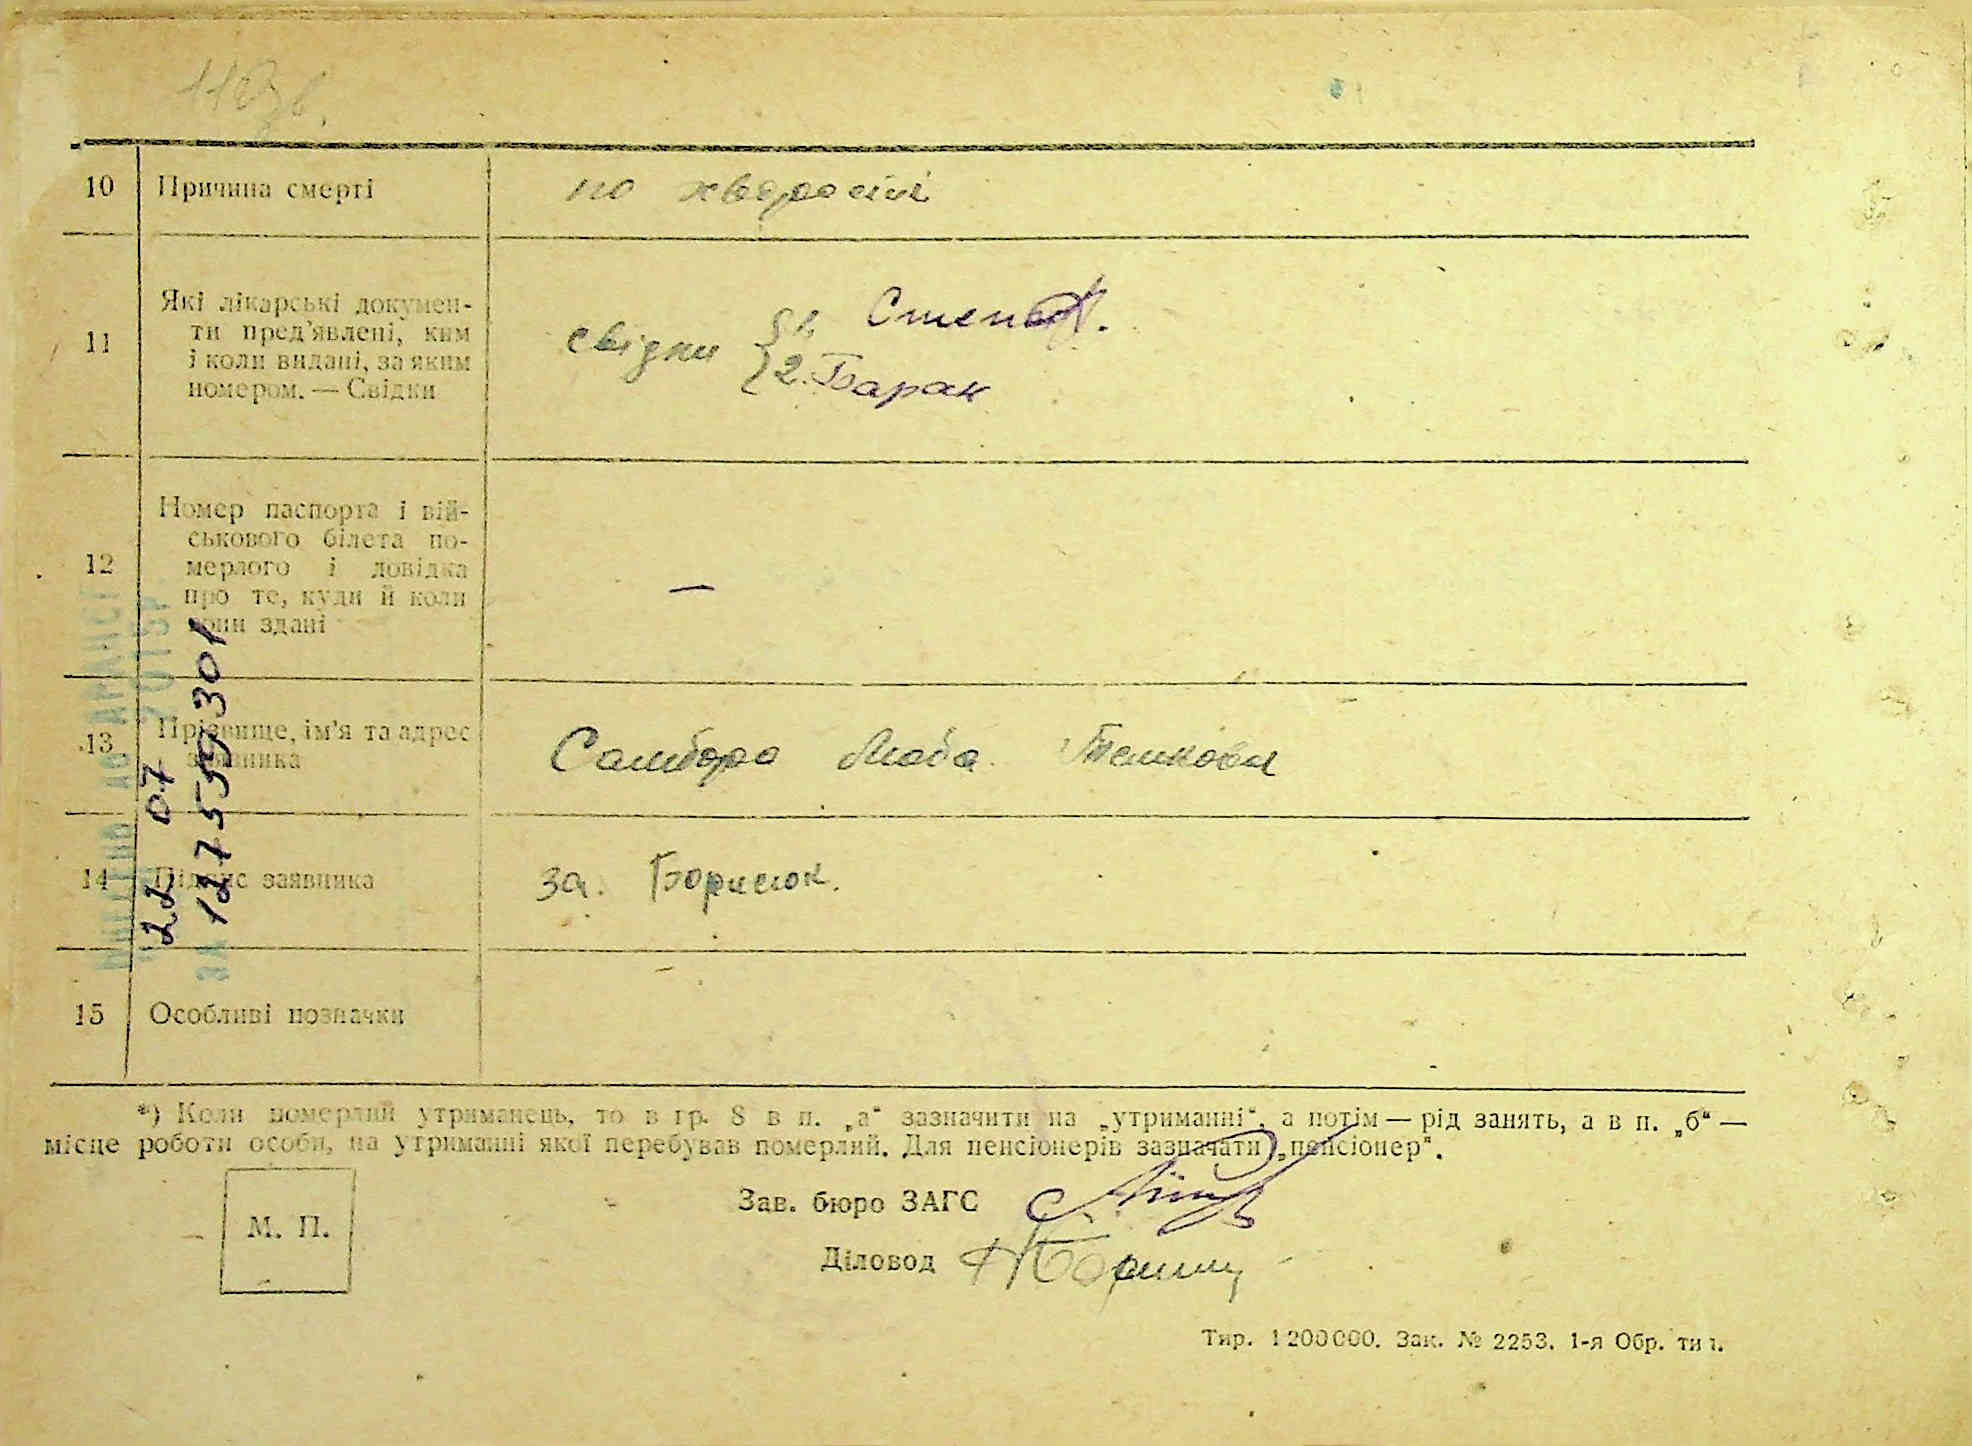 10 Причина смерті по хворості
11 Які лікарські докумен-
ти пред'явлені, ким
і коли видані, за яким
номером. — Свідки
свідки 1.
2. Баран
12 Номер паспорта і вій-
ськового білета по-
мерлого і довідка
про те, куди й коли
вони здані
—
13 Прізвище, ім'я та адрес
заявника
Самбора
14 Підпис заявника за. Борисюк.
15 Особливі позначки
22 07
127559301
*) Коли померлий утриманець, то в гр. 8 в п. „а“ зазначити на „утриманні“, а потім — рід занять, а в п. „б“ —
місце роботи особи, на утриманні якої перебував померлий. Для пенсіонерів зазначати „пенсіонер“.
М. П.
Зав. бюро ЗАГС
Діловод
Тир. 1200000. Зак. № 2253. 1-я Обр. тип.